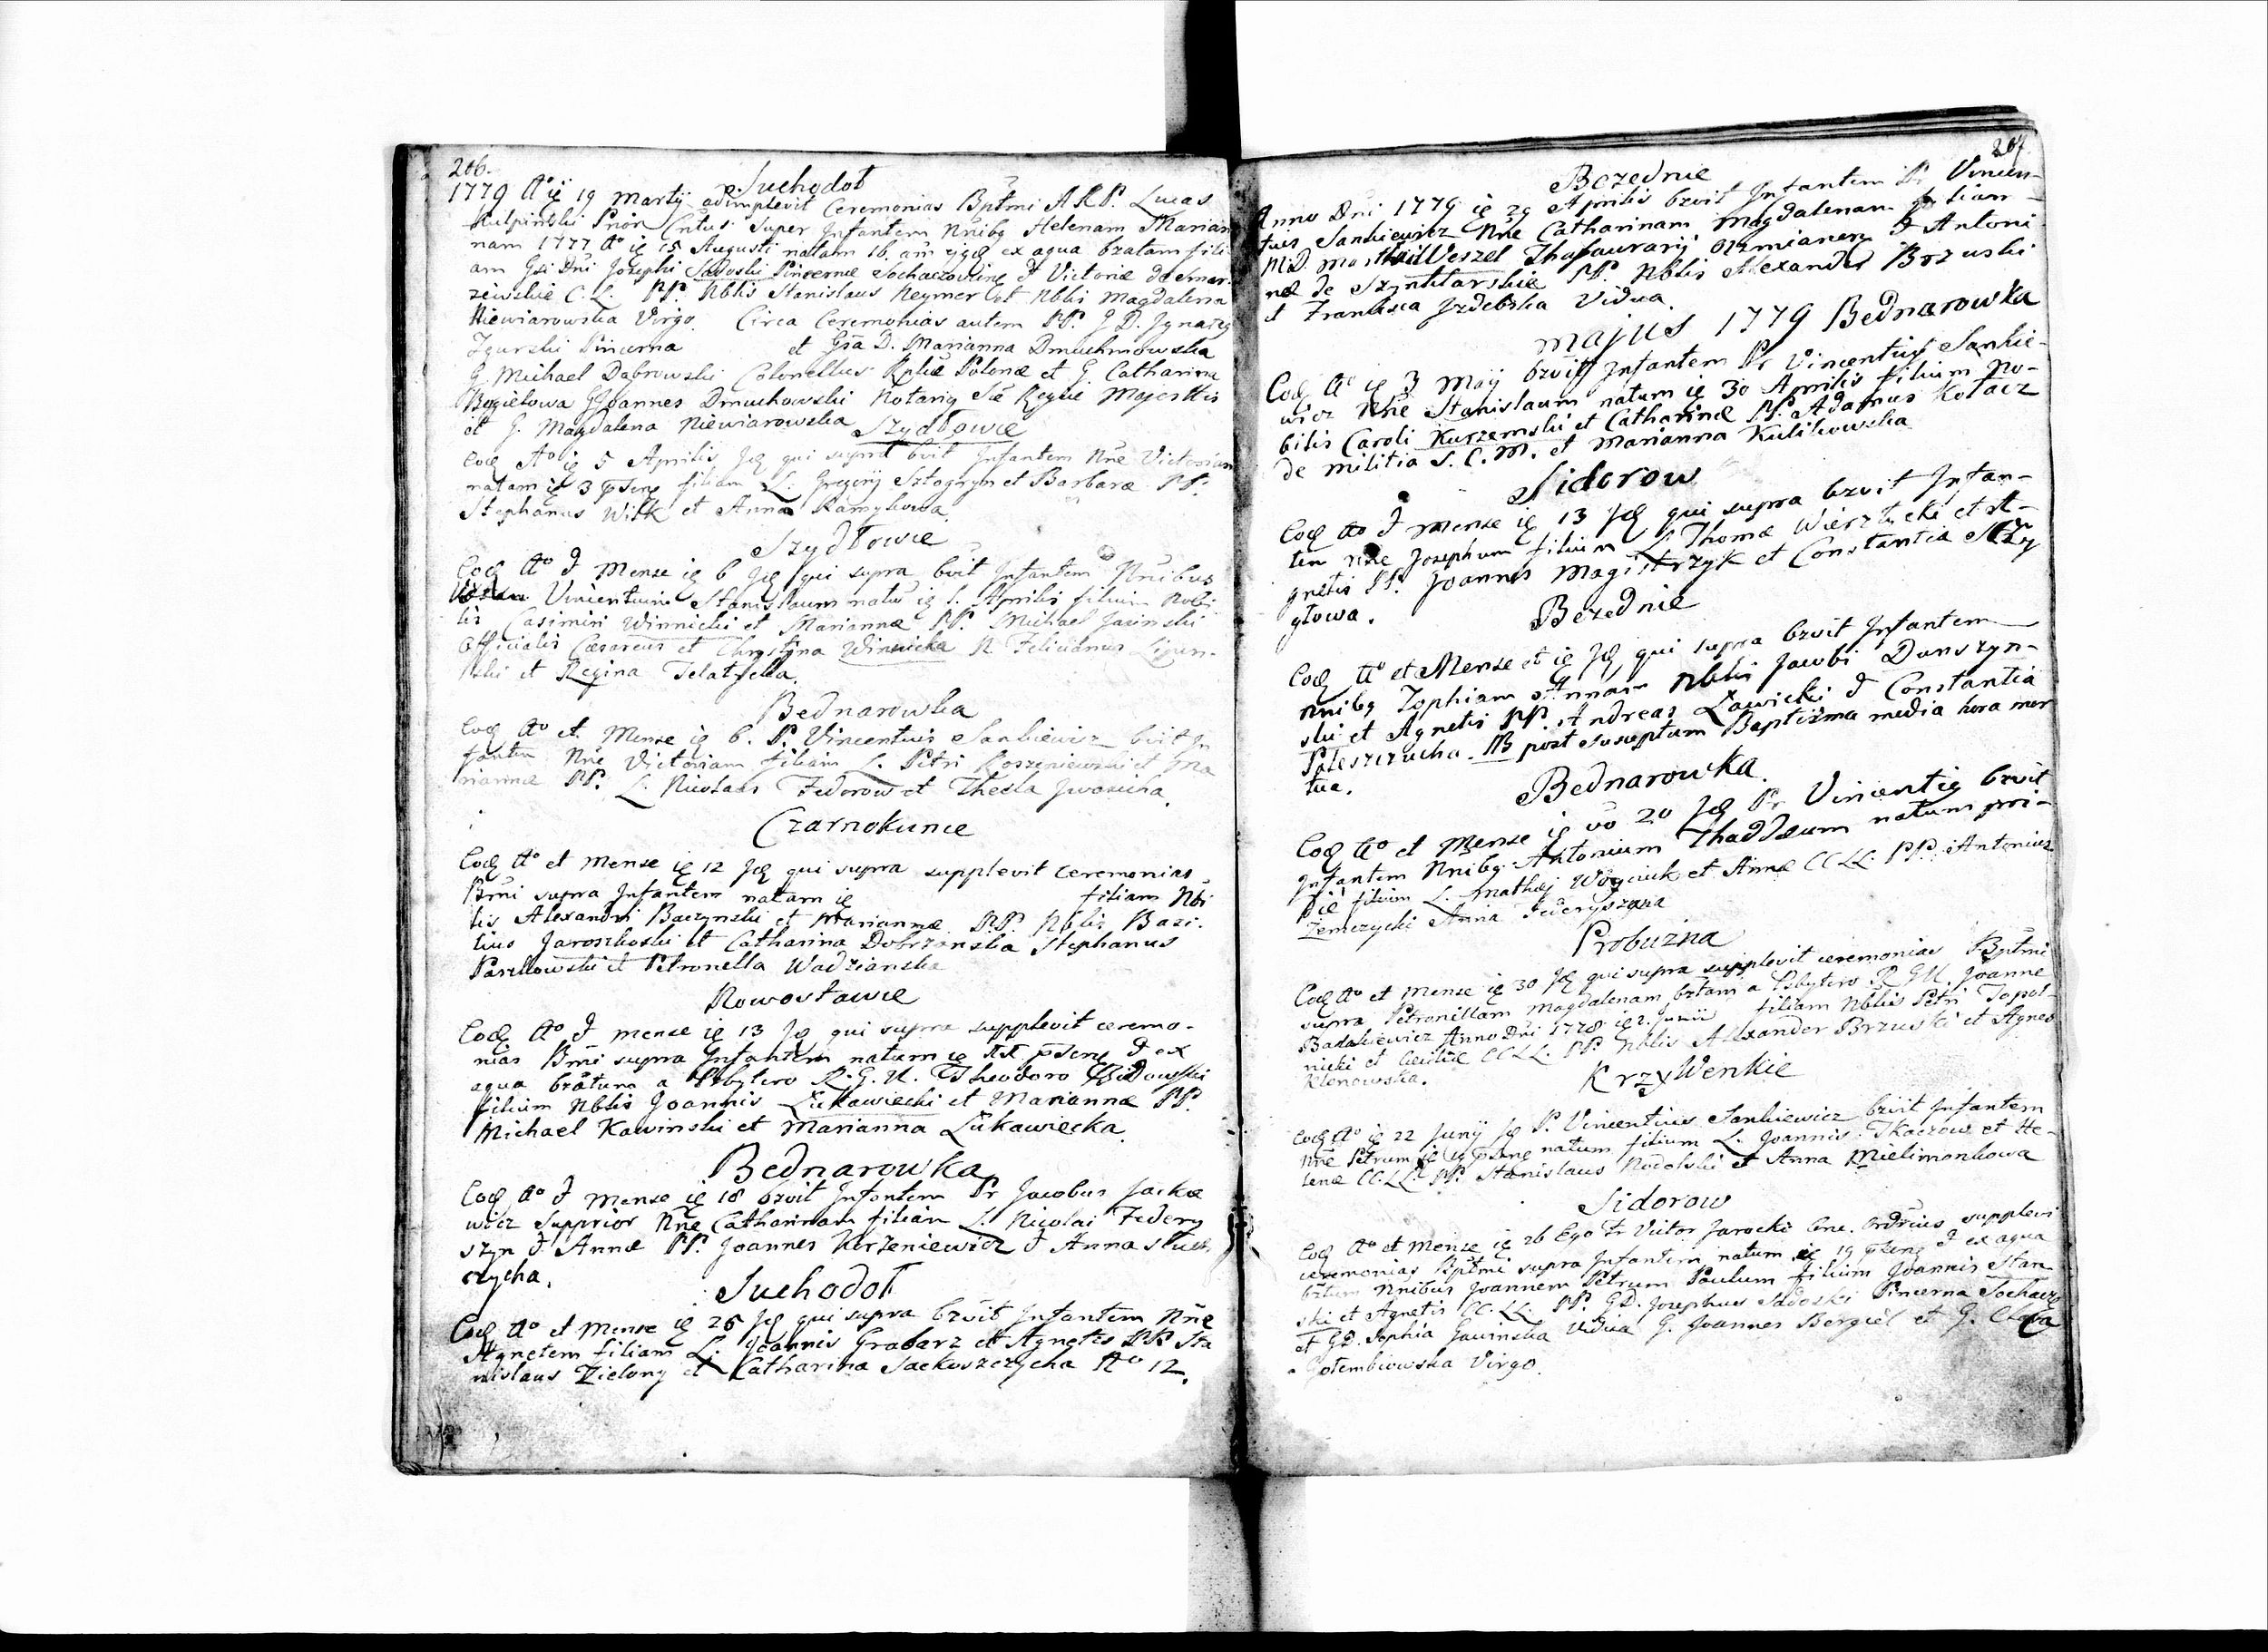 206.
Suchodoł
1779 A° ię 19 Martÿ adimplevit Ceremonias Bptmi A.R.P. Lucas
Kulpinski Prior Cntus super Infantem Nnibg Helenam Marian
nam 1777 A° ię 15 Augusti natam 16. ex aqua bzatam fili
am Gsi Dni Josephi Sadoski Pincernæ Sochaczoviens & Victoriæ de
C.L. PP. Nblis Stanislaus Neymer et Nblis Magdalena
Niewiarowska Virgo. Circa Ceremonias autem PP. G D. Ignatig
Zgurski Pincerna et Gsa D. Marianna Dmuchnowska
G. Michael Dąbrowski Colonellus Rplicæ Polonæ et G. Catharina
Bogielowa G Joannes Dmuchowski Notarig Sæ Regiæ Majesttis
et G. Magdalena Niewiarowska
Szydłowce
Eoq A° ię 5 Aprilis Jq qui supra bzit Infantem Nne Victoriam
natam ię 3 pstng filiam L. Gregorÿ Sztogryn et Barbaræ PP.
Stephanus Wilk et Anna Ramykowa.
Szydłowce
Eoq A° & Mense ię 6 Jq qui supra bzit Infantem Nnibus
Vincentium Stanislaum natū ię 1. Aprilis filium Nobi
lis Casimiri Winnicki et Mariannæ PP. Michael Jasinski
Officialis Cæsareus et Chrystyna Winnicka N. Felicianus
et Regina
Bednarowka
Eoq A° et Mense ię 6. P. Vincentius Sankiewicz bzit In
fantem Nne Victoriam filiam L. Petri et Ma
riannæ PP. L. Nicolaus Fedorow et Thecla Iwasicha.
Czarnokunce
Eoq A° et Mense ię 12 Jq qui supra supplevit ceremonias
Bmi supra Infantem natam ię filiam Nbi
lis Alexandri Baczynski et Mariannæ PP. Nblis Basi-
lius Jaroszkoski et Catharina Dobrzanska Stephanus
Pawłowski et Petronella Wadzianska
Nowostawce
Eoq A° & mense ię 13 Jq qui supra supplevit ceremo-
nias Bmi supra Infantem natum ię pstng & ex
aqua bzatum a Psbytero R.G.U. Theodoro
filium Nblis Joannis Łukawiecki et Mariannæ PP.
Michael Kawinski et Marianna Łukawiecka.
Bednarowka
Eoq A° & Mense ię 18 bzvit Infantem Pr Jacobus Jackie
wicz Supprior Nne Catharinam filiam L. Nicolai Federy
szyn & Annæ PP. Joannes Korżeniewicz & Anna
czycha.
Suchodoł
Eoq A° et Mense ię 25 Jq qui supra bzvit Infantem Nne
Agnetem filiam L. Joannis Grabarz et Agnetis PP. Sta
nislaus Zielony et Catharina Sackoszczycha N° 12.
207.
Bezednie
Anno Dni 1779 ię 29 Aprilis bzvit Infantem Pr Vincen-
tius Sankiewicz Nne Catharinam Magdalenam filiam
M.D. Weszel Thesaurarÿ Ozmianen & Antoni
næ de PP. Nblis Alexander Brzuski
& Francisca Jzdebska Vidua.
Majus 1779 Bednarowka
Eoq A° ię 3 Maÿ bzvit Infantem Pr Vincentius Sankie-
wicz Nne Stanislaum natum ię 30 Aprilis filium No-
bilis Caroli Kurzemski et Catharinæ PP. Adamus Kołacz
de militia S.C.M. et Marianna Kulikowska
Sidorow
Eoq A° & Mense ię 13 Jq qui supra bzvit Infan-
tem Nne Josephum filium L. Thomæ Wierzbicki et A-
gnetis PP. Joannes Magistrzyk et Constantia Szczy
głowa.
Bezednie
Eoq A° et Mense et ię Jq qui supra bzvit Infantem
Nnibg Zophiam Annam Nblis Jacobi Dunszyn-
ski et Agnetis PP. Andreas Ławicki & Constantia
Poleszczucha. NB post susceptum Baptisma media hora mor
tua.
Bednarowka.
Eoq A° et Mense ię vō 20 Jq Pr Vincentig bzvit
Infantem Nnibg Antonium Thaddæum natum pri-
die filium L. Mathæj Woyciuk et Annæ CCLL. PP. Antonius
Zemczycki Anna Federyszyna
Probuzna
Eoq A° et Mense ię 30 Jq qui supra supplevit ceremonias Bptmi
supra Petronillam Magdalenam bztam a Psbytero R.G.U. Joanne
Anno Dni 1778 ię 2. Junii filiam Nblis Petri Topol-
nicki et Ceciliæ CCLL. PP. Nblis Alexander Brzuski et Agnes
Klonowska.
KrzyWenkie
Eoq A° ię 22 Junÿ Jq P. Vincentius Sankiewicz bzvit Infantem
Nne Petrum ię 19 pstng natum filium L. Joannis Tkaczow et He-
lenæ CC.LL. PP. Stanislaus Nodolski et Anna Mielimonkowa
Sidorow
Eoq A° et Mense ię 26 Ego Fr Victor Jarocki Cne. Ordrius supplevi
ceremonias Bptmi supra Infantem natum ię 19 pstng & ex aqua
bztum Nnibus Joannem Petrum Paulum filium Joannis Stan
ski et Agnetis CC.LL. PP. G.D. Josephus Sadoski Pincerna Sochacz
et GD. Sophia Gawinska Vidua G. Joannes Bergiel et G. Clara
Gołembiowska Virgo.